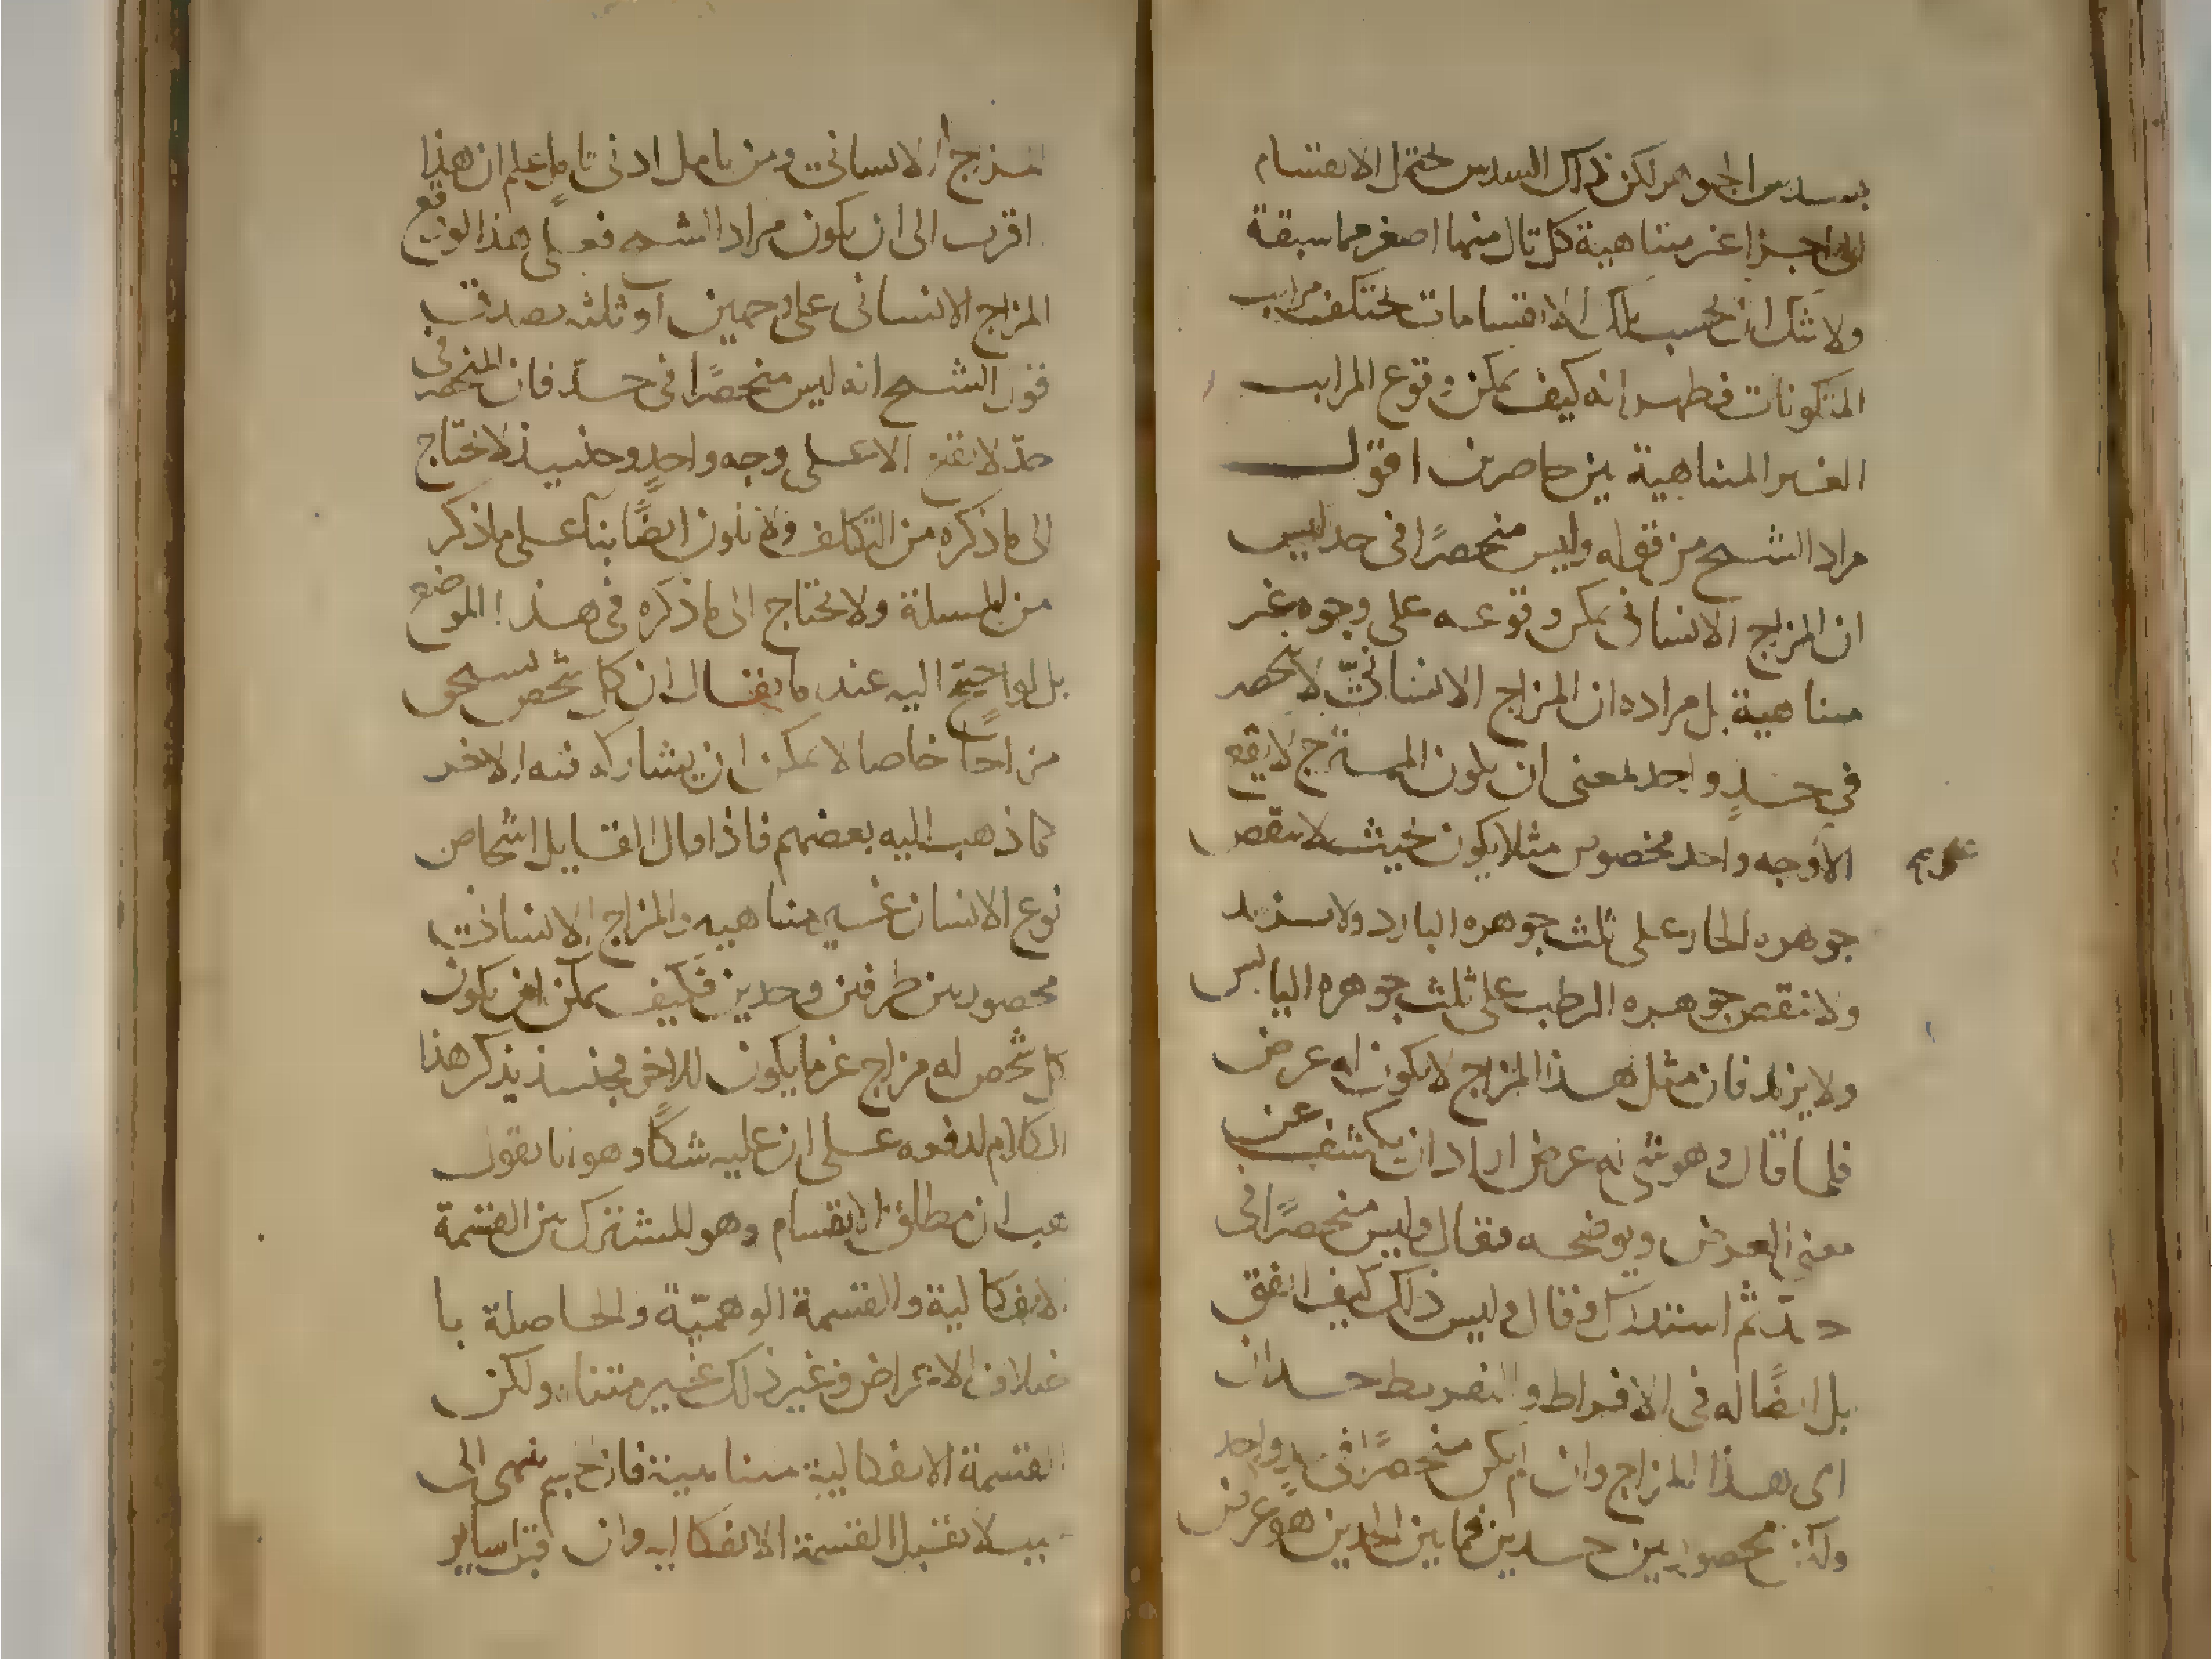 بسدس الجوهر لكن ذاك السدس يحتمل الانقسام
الى اجزا غير متناهية كل تال منها اصغر مما سبقة
ولا شك ان بحسب تلك الانقسامات تختلف مراتب
المتكونات فظهر انه كيف يمكن وقوع المراتب
الغير المتناهية بين حاصرين اقول
مراد الشيخ من قوله وليس منحصرًا فى حد ليس
ان المزاج الانسانى يمكن وقوعه على وجوه غير
متناهية بل مراده ان المزاج الانسانىّ لا ينحصر
فى حدٍ واحد بمعنى ان يكون الممتزج لا يقع
الا وجه واحد مخصوص مثلا يكون بحيث لا ينقص
جوهره الحار على ثلث جوهره البارد ولا يزيد
ولا ينقص جوهره الرطب على ثلث جوهره اليابس
ولا يزيد فان مثل هذا المزاج لا يكون له عرض
فلما قال وهو شى له عرض اراد ان يكشف عن
معنى العرض ويوضحه فقال وليس منحصرًا فى
حد ثم استدرك وقال وليس ذلك كيف اتفق
بل ايضًا له فى الافراط والتفريط حدان
اى هذا المزاج وان لم يكن منحصرًا فى واحد
ولكن محصور بين حدين فما بين الحدين هو عرض
المزاج الانسانى ومن تامل ادنى تاملٍ علم ان هذا
اقرب الى ان يكون مراد الشيخ فعلى هذا لو وقع
المزاج الانسانى على وجهين او ثلثه يصدق
قول الشيخ انه ليس منحصرًا فى حدّ فان المنحصر فى
حدّ لا يقع الا على وجه واحدٍ وحينيذ لا يحتاج
الى ما ذكره من التكلف ولا يكون ايضًا بنآ على ما ذكر
من المسلة ولا يحتاج الى ما ذكره فى هذا الموضع
بل لو احتيج اليه عند ما يقال ان كل شخص يستحق
مزاجًا خاصا لا يمكن ان يشاركه فيه الاخر
كما ذهب اليه بعضهم فاذا قال القايل اشخاص
نوع الانسان غير متناهيه والمزاج الانسانى
محصور بين طرفين وحدين فكيف يمكن ان يكون
كل شخص له مزاج غير ما يكون للاخر فحينيذ يذكر هذا
الكلام لدفعه على ان عليه شكًا وهو انا نقول
هب ان مطلق الانقسام وهو المشترك بين القسمة
الانفكاكية والقسمة الوهميّة والحاصلة با
ختلاف الاعراض وغير ذلك غير متناه ولكن
القسمة الانفكاكية متناهية فان الجسم ينتهى الى
لا يقبل القسمة الانفكاكيه وان قبل ساير